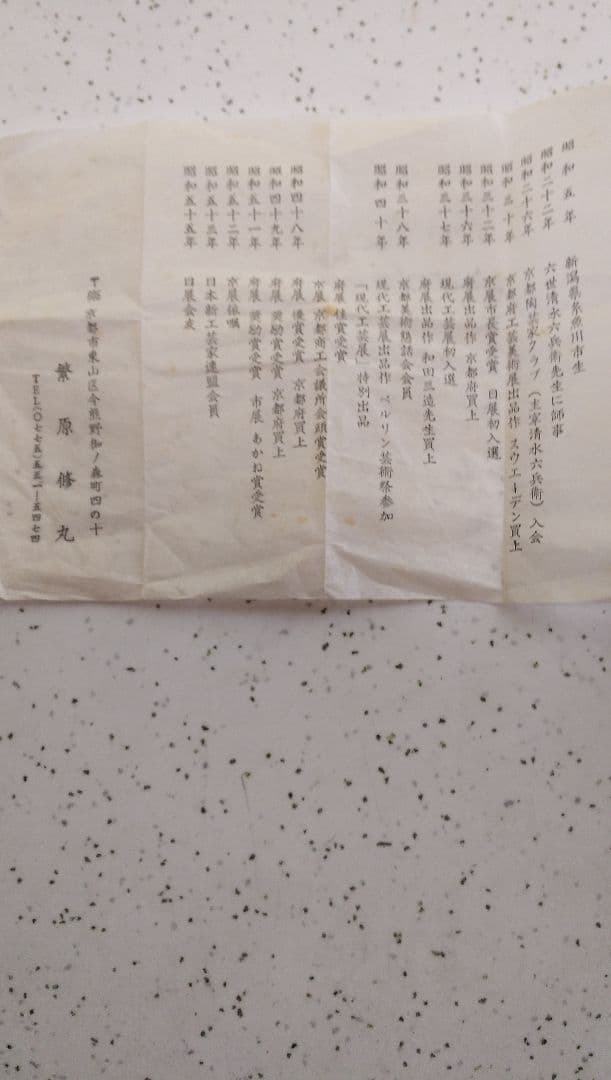 昭和五年 新潟県糸魚川市生
昭和二十二年 六世清水六兵衛先生に師事
昭和二十六年 京都陶芸家クラブ(主宰清水六兵衛)入会
昭和三十年 京都府工芸美術展出品作 スウエーデン買上
昭和三十二年 京展市長賞受賞 日展初入選
昭和三十六年 府展出品作 京都府買上
昭和三十七年 現代工芸展初入選
府展出品作 和田三造先生買上
昭和三十八年 京都美術懇話会会員
昭和四十年 現代工芸展出品作 ベルリン芸術祭参加
「現代工芸展」特別出品
府展佳賞受賞
京展 京都商工会議所会頭賞受賞
昭和四十八年 府展 優賞受賞 京都府買上
昭和四十九年 府展 奨励賞受賞 京都府買上
昭和五十一年 府展 奨励賞受賞 市展 あかね賞受賞
昭和五十二年 京展依嘱
昭和五十三年 日本新工芸家連盟会員
昭和五十五年 日展会友
京都市東山区今熊野御ノ森町四の十
繁原修丸
TEL(〇七七五)五一-五四七四